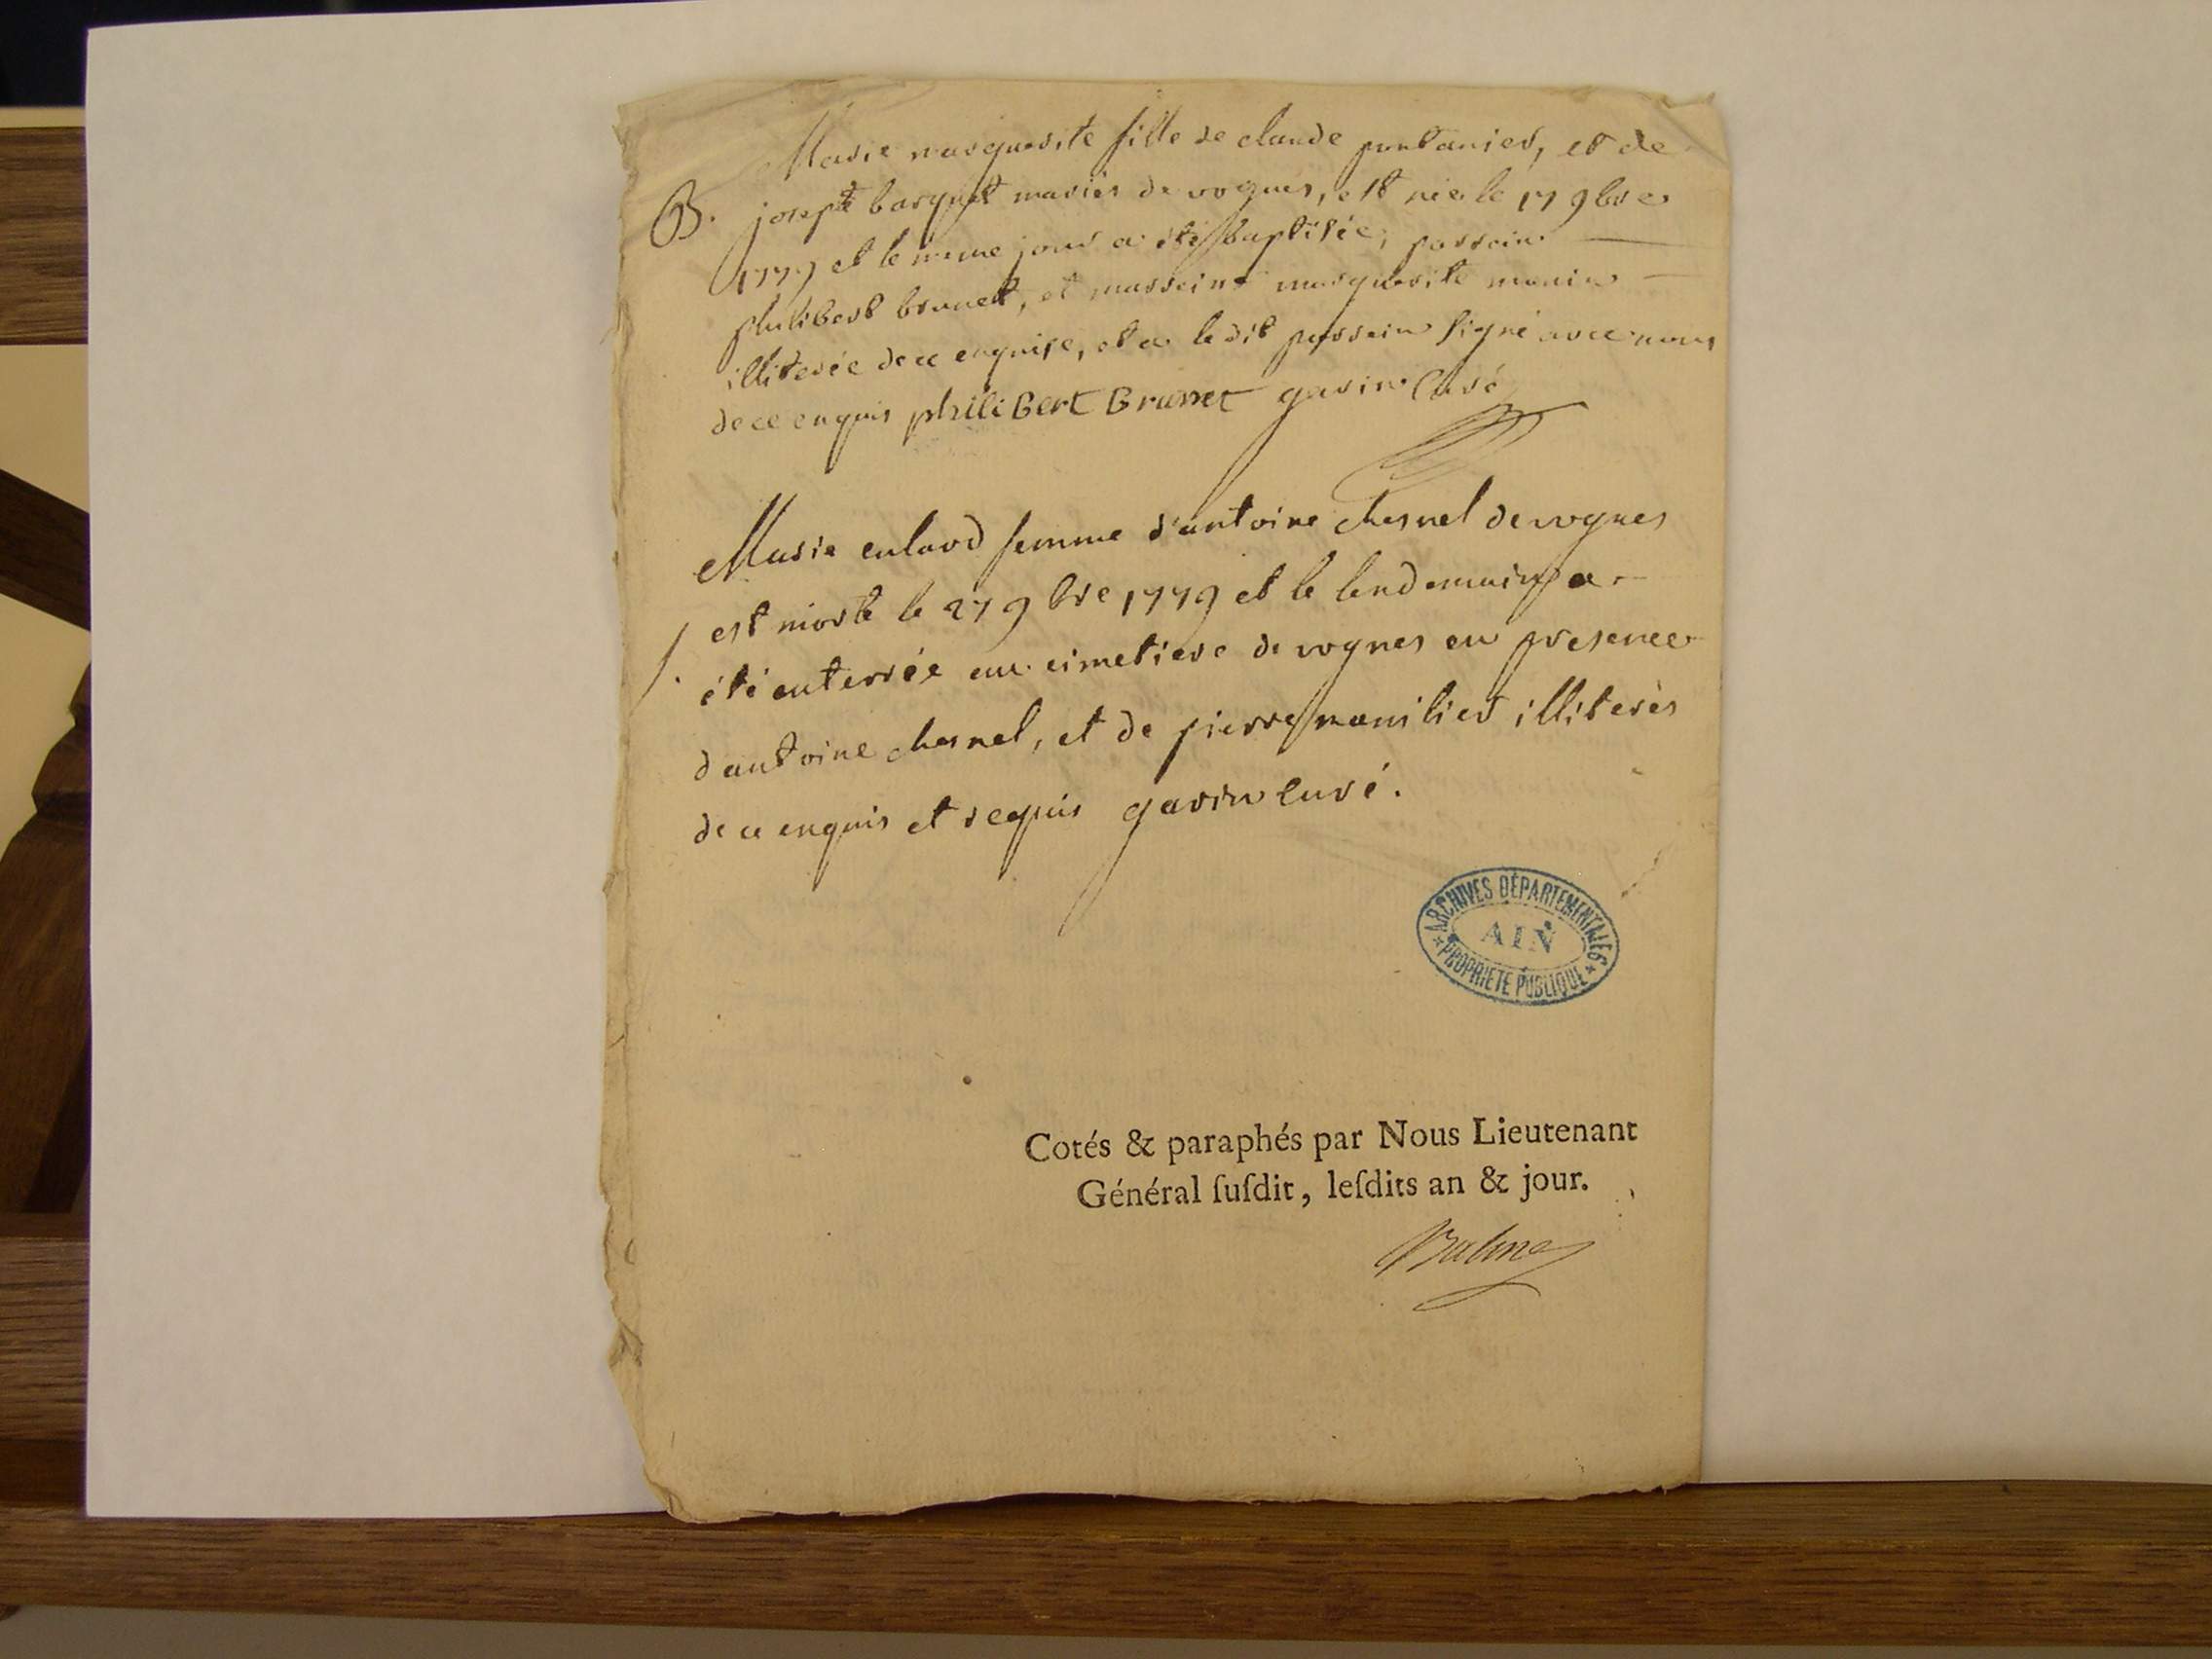 Marie marguerite fille de claude pontanier, et de
B. josepte barquet mariés de vognes, est née le 17 9bre
1779 et le meme jour a été baptisée, parrain
philibert brunet, et marreine marguerite manin
illiterée de ce enquise, et a le dit parrain signé avec nous
de ce enquis philiBert Brunet gavin Curé
Marie enlard femme d'antoine chesnel de vognes
est morte le 27 9bre 1779 et le lendemain a
S. été enterrée au cimetiere de vognes en presence
d'antoine chesnel, et de pierre manilier illiterés
de ce enquis et requis gavin curé.
ARCHIVES DÉPARTEMENTALES
AIN
PROPRIÉTÉ PUBLIQUE
Cotés & paraphés par Nous Lieutenant
Général ſuſdit, leſdits an & jour.
Balme